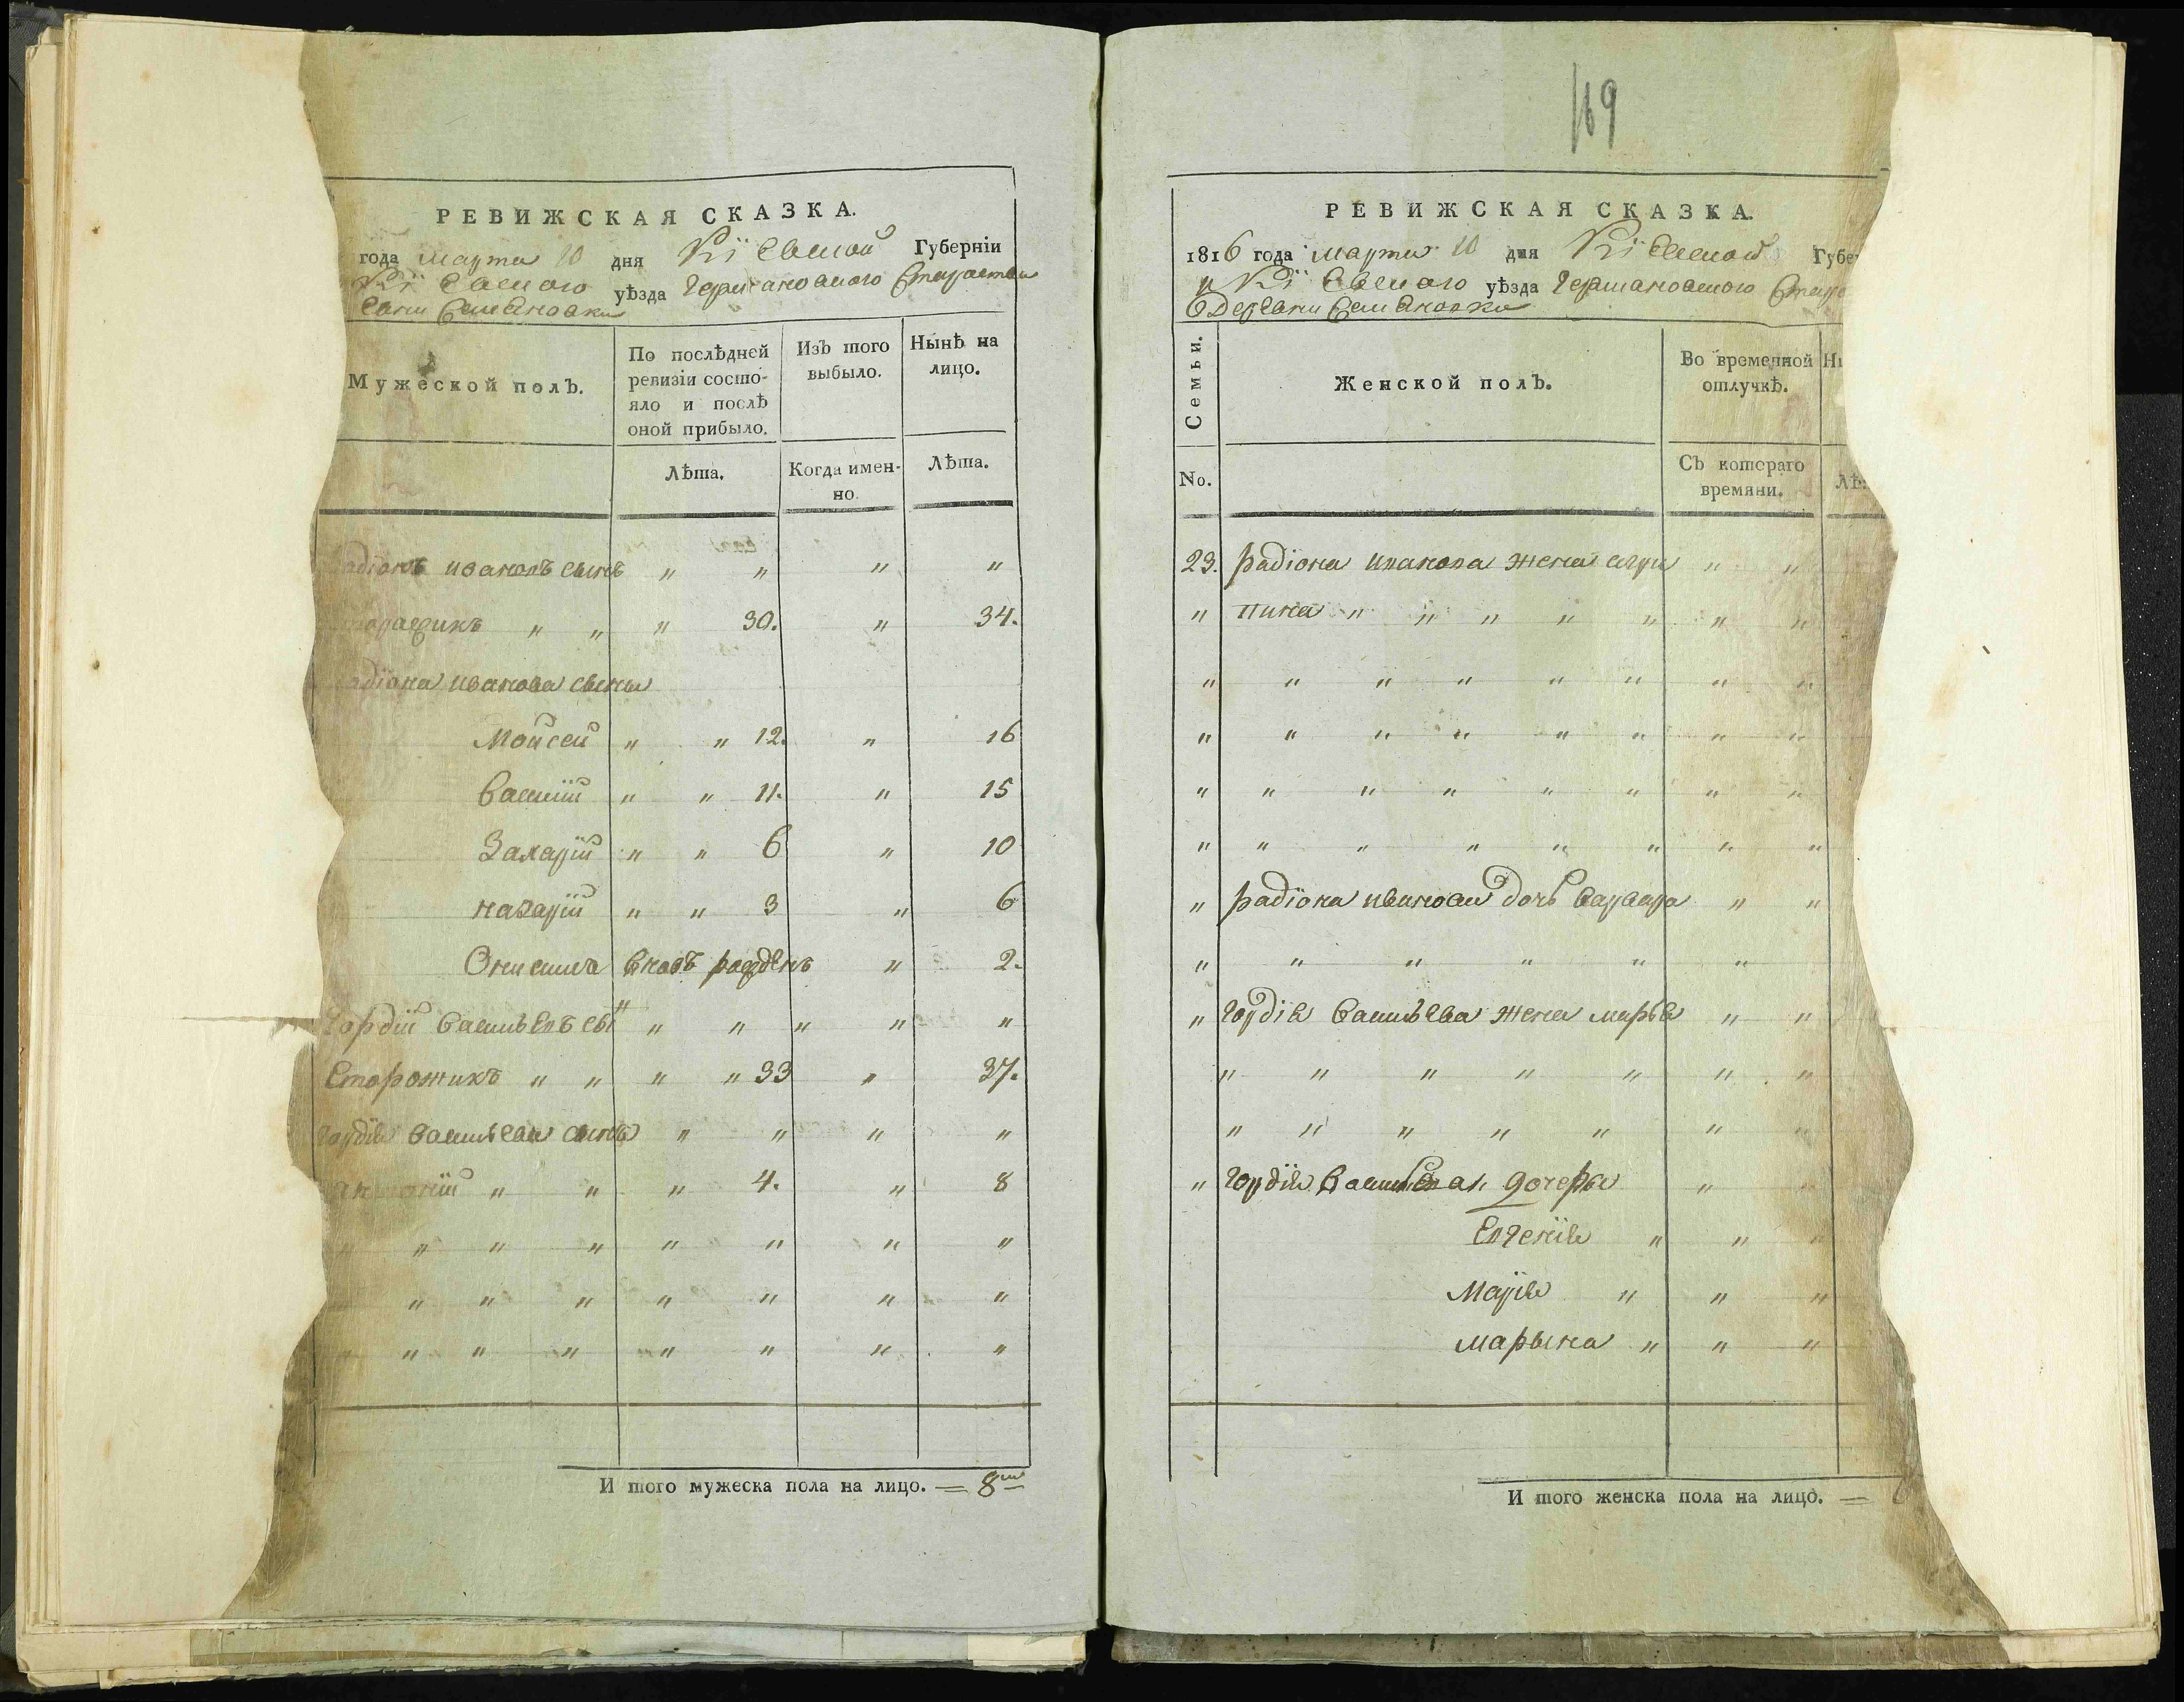 РЕВИЖСКАЯ СКАЗКА.
года марта 10 дня Кіевской Губерніи
Кіевского уѣзда Германовского Староства
Мужеской полъ.
По послѣдней ревизіи состо-
яло и послѣ
оной прибыло.
Изъ того
выбыло.
Нынѣ на
лицо.
Лѣта.
Когда имен-
но.
Лѣта.
адіонъ ивановъ сынъ " " " "
" " " 30. " 34.
адіона иванова сыны
Мойсей " " 12. " 16
василій " " 11. " 15
Захарій " " 6 " 10
назарій " " 3 " 6
Онисимъ вновь рожденъ " 2.
гордій васильевъ сы " " " " "
Сторожикъ " " " " 33 " 37.
гордія васильева сынъ " " " "
" " " 4. " 8
" " " " " " " "
" " " " " " "
" " " " " " " "
И того мужеска пола на лицо. = 8
169
РЕВИЖСКАЯ СКАЗКА.
1816 года марта 10 дня Кіевской Губе
Кіевского уѣзда Германовского
Деревни Семеновки
Семьи.
Женской полъ.
Во временной
отлучкѣ.
No.
Съ котораго
времяни.
23. радіона иванова жена агри " "
" пина " " " " " " "
" " " " " " " "
" " " " " " " "
" " " " " " " "
" " " " " " " "
" радіона иванова дочь варвара " "
" " " " " "
" гордія васильева жена марья " "
" " " " " " "
" " " " " " "
" гордія васильева дочери "
Евгенія " " "
Марія " " "
марына " " "
И того женска пола на лицо. =